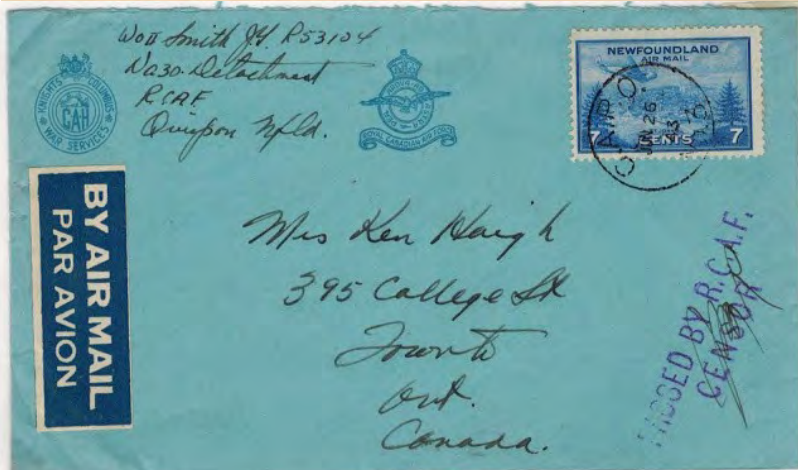 WO II Smith J.Y. R53104
No 30 Detachment
RCAF
Quirpon Nfld.
KNIGHTS OF COLUMBUS
CAH
WAR SERVICES
ROYAL CANADIAN AIR FORCE
NEWFOUNDLAND
AIR MAIL
7 CENTS 7
C.A.P.O.
26
BY AIR MAIL
PAR AVION
Mrs Ken Haigh
395 College St
Toronto
Ont.
Canada.
PASSED BY R.C.A.F.
CENSOR